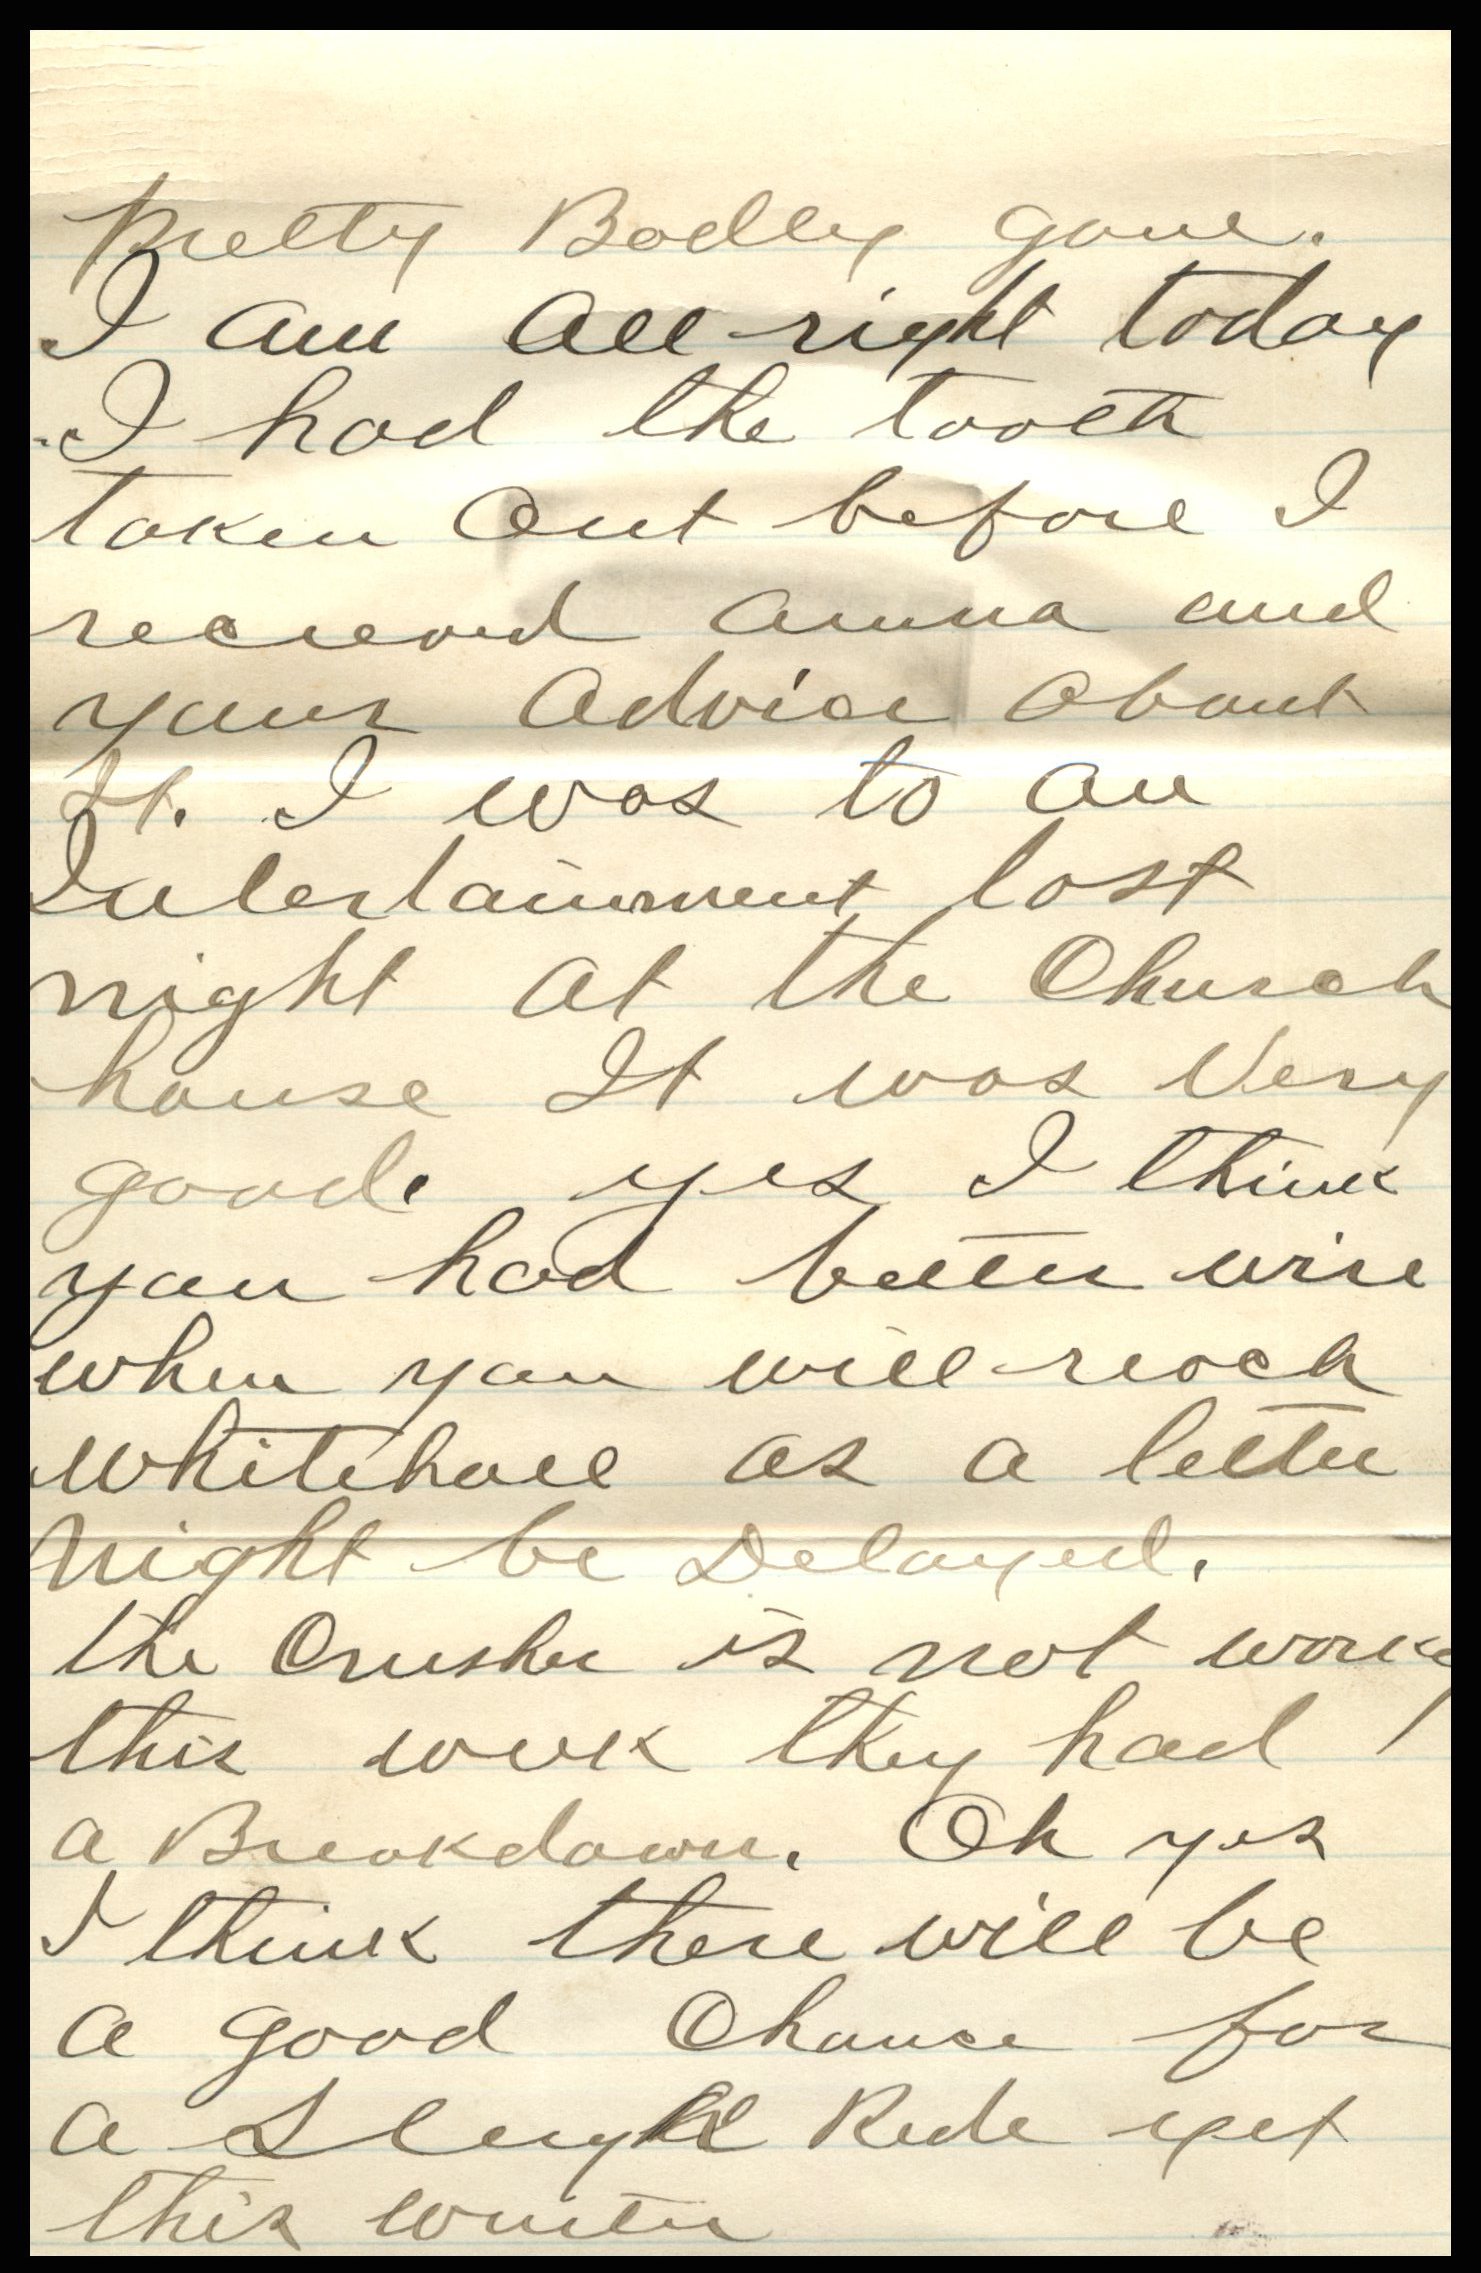 Pretty Badley gone.
I am all right today
I had the tooth
taken out before I
recieved Anna and
your Advice about
It. I was to an
Intertainment last
night at the Church
house It was Very
good. yes I think
you had better wire
when you will reach
Whitehall as a letter
might be Delayed.
the Crusher is not working
this week they had
a Breakdown. Oh yes
I think there will be
a good Chance for
a Sleigh Ride yet
this winter